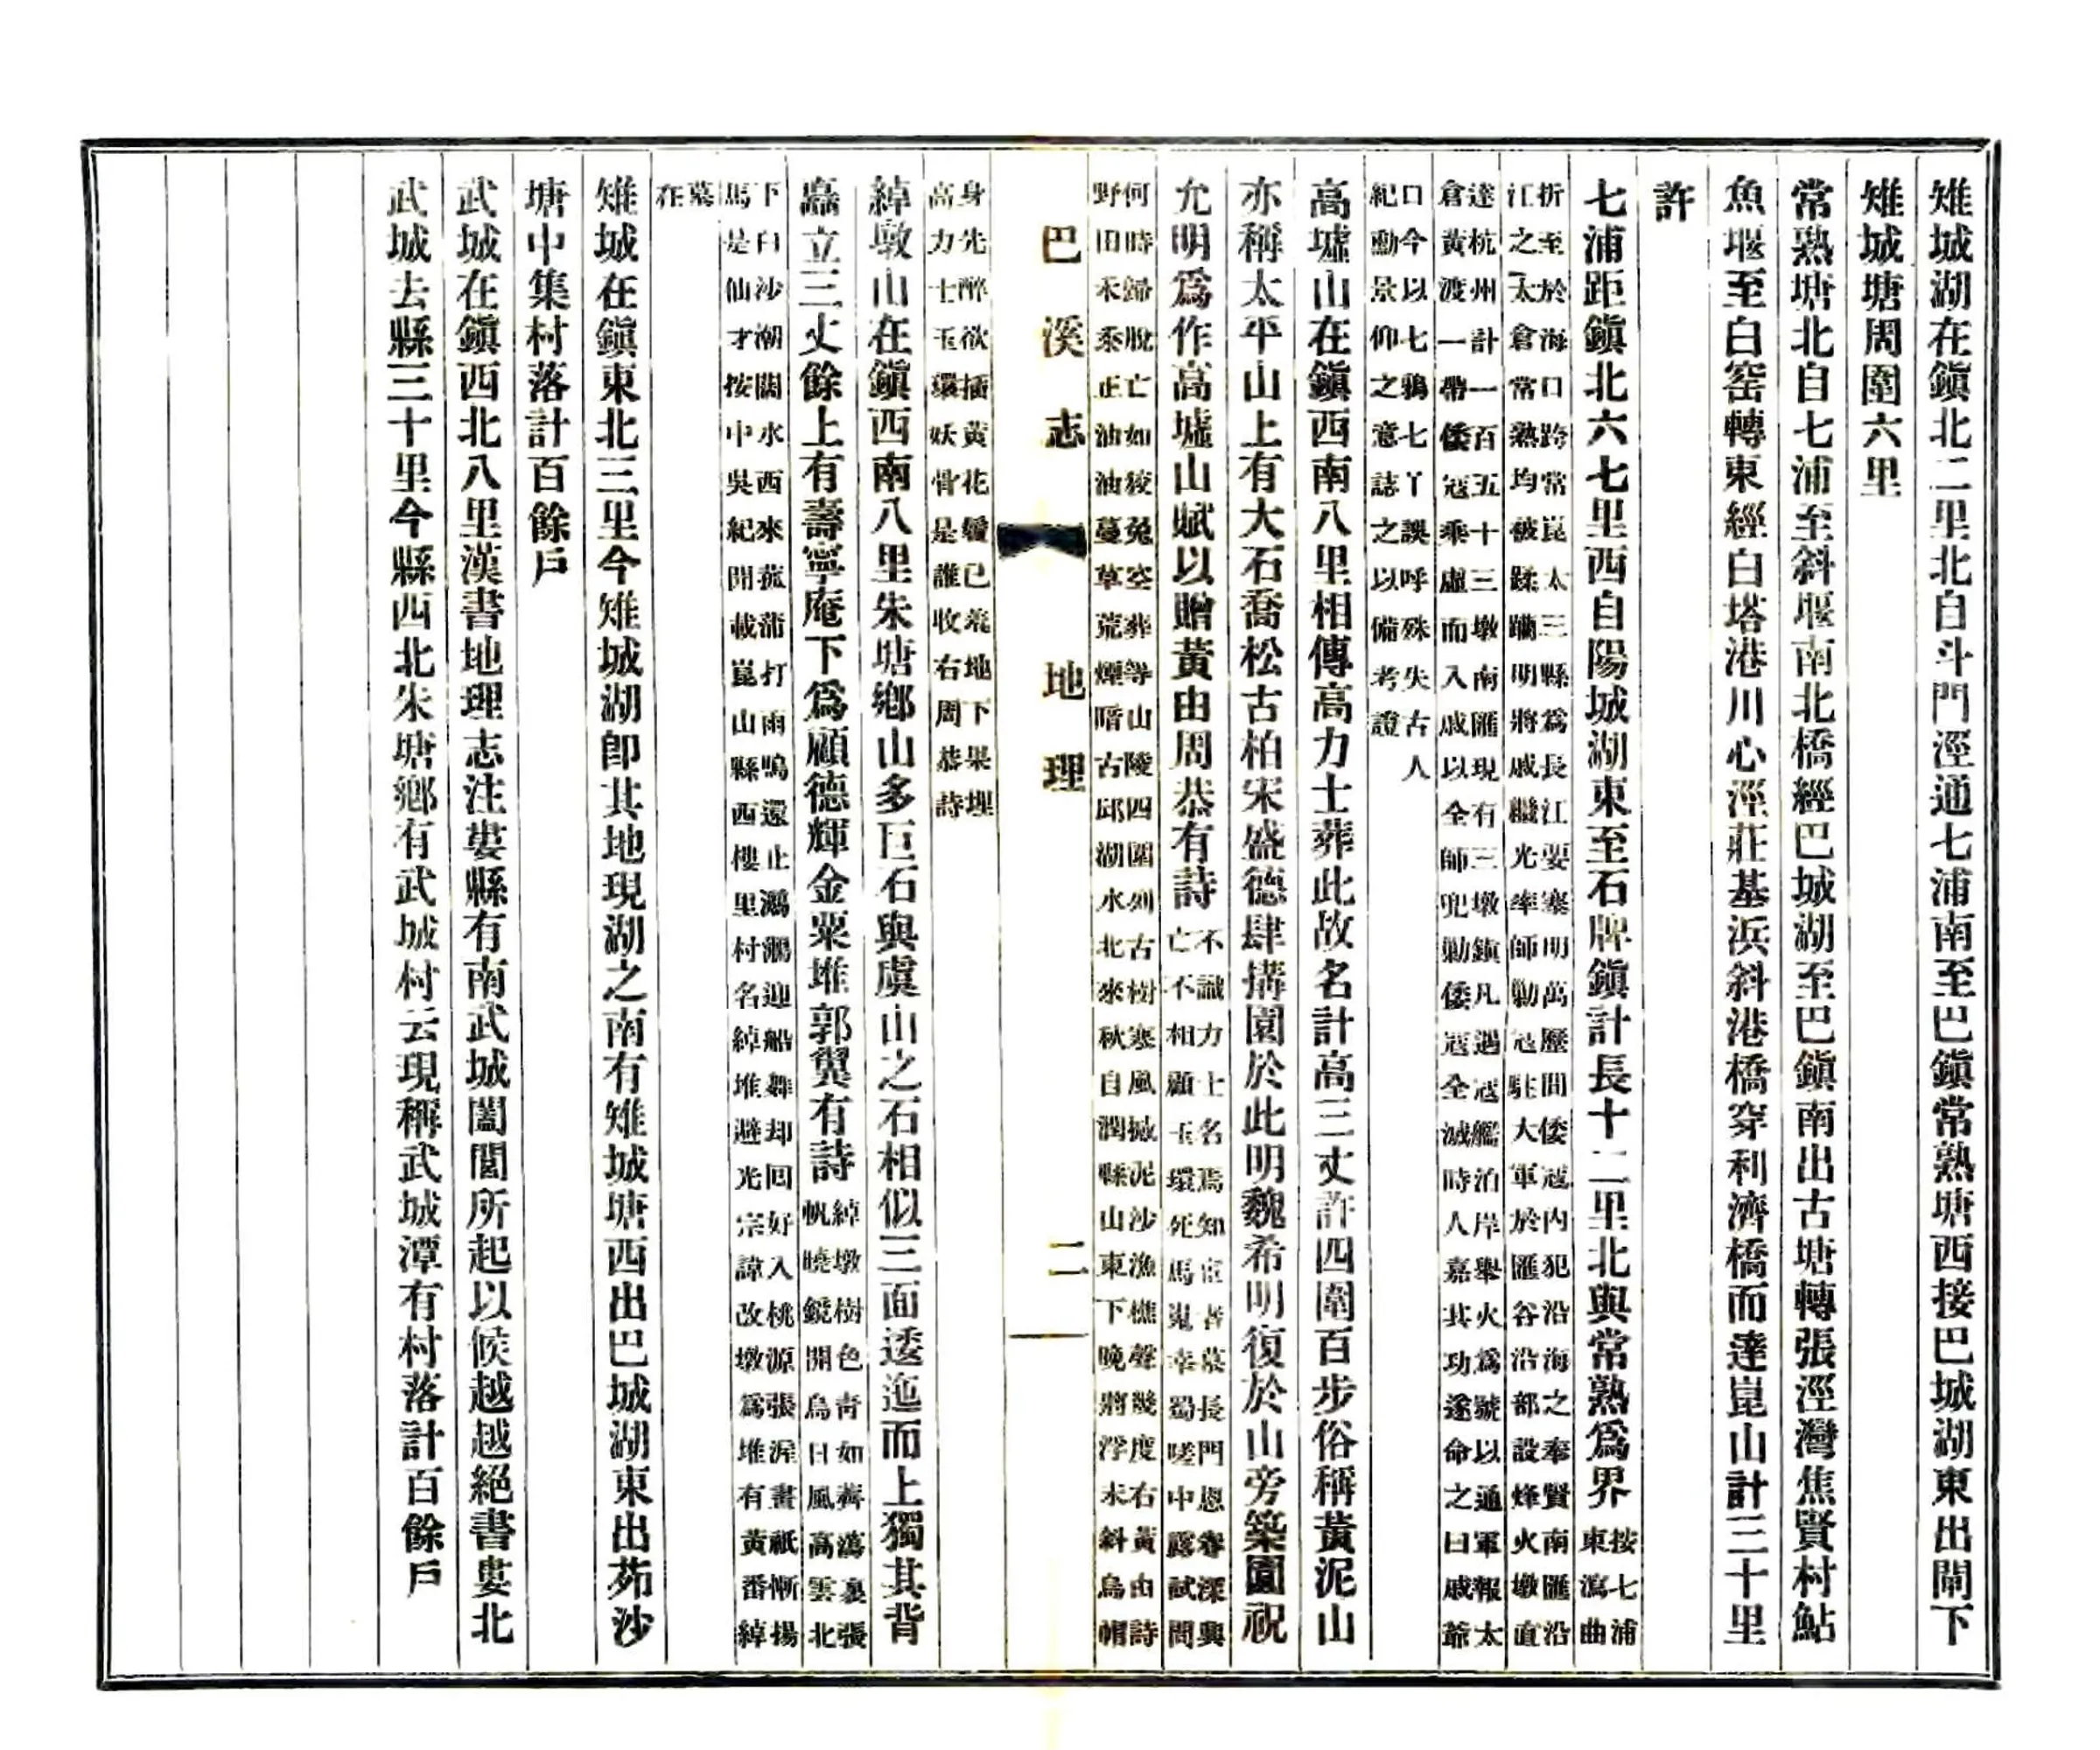 雉城湖在鎮北二里北自斗門涇通七浦南至巴鎮常熟塘西接巴城湖東出閘下
雉城塘周圍六里
常熟塘北自七浦至斜堰南北橋經巴城湖至巴鎮南出古塘轉張涇灣焦賢村鮎
魚堰至白窑轉東經白塔港川心涇莊基浜斜港橋穿利濟橋而達崑山計三十里
許
七浦距鎮北六七里西自陽城湖東至石牌鎮計長十二里北與常熟爲界
按七浦
東瀉曲
折至於海口跨常崑太三縣爲長江要塞明萬歷間倭寇内犯沿海之奉賢南匯沿
江之太倉常熟均被蹂躪明將戚繼光率師勦寇駐大軍於匯谷沿部設烽火墩直
達杭州計一百五十三墩南匯現有三墩鎮凡遇寇艦泊岸舉火爲號以通軍報太
倉黃渡一帶倭寇乘虛而入戚以全師兜勦倭寇全滅時人嘉其功遂命之曰戚爺
口今以七鴉七丫誤呼殊失古人
紀勳景仰之意誌之以備考證
高墟山在鎮西南八里相傳高力士葬此故名計高三丈許四圍百步俗稱黃泥山
亦稱太平山上有大石喬松古柏宋盛德肆搆園於此明魏希明復於山旁築園祝
允明爲作高墟山賦以贈黃由周恭有詩
不識力士名焉知宦者墓長門恩眷深興
亡不相顧玉環死馬嵬幸蜀嗟中露試問
何時歸脫亡如狡兔空葬等山陵四圍列古樹寒風撼泥沙漁樵聲幾度右黃由詩
野田禾黍正油油蔓草荒煙暗古邱湖水北來秋自潤縣山東下晚將浮未斜烏帽
巴溪志 地理 二
身先醉欲插黃花鬢已羞地下果埋
高力士玉環妖骨是誰收右周恭詩
綽墩山在鎮西南八里朱塘鄉山多巨石與虞山之石相似三面逶迤而上獨其背
矗立三丈餘上有壽寧庵下爲顧德輝金粟堆郭翼有詩
綽墩樹色青如薺蕩裏張
帆曉鏡開烏日風高雲北
下白沙潮闊水西來菰蒲打雨鳴還止鸂鶒迎船舞却回好入桃源張渥畫祇慚揚
馬是仙才按中吳紀聞載崑山縣西樓里村名綽堆避光宗諱改墩爲堆有黃番綽
墓
在
雉城在鎮東北三里今雉城湖卽其地現湖之南有雉城塘西出巴城湖東出茆沙
塘中集村落計百餘戶
武城在鎮西北八里漢書地理志注婁縣有南武城闔閭所起以候越越絕書婁北
武城去縣三十里今縣西北朱塘鄉有武城村云現稱武城潭有村落計百餘戶